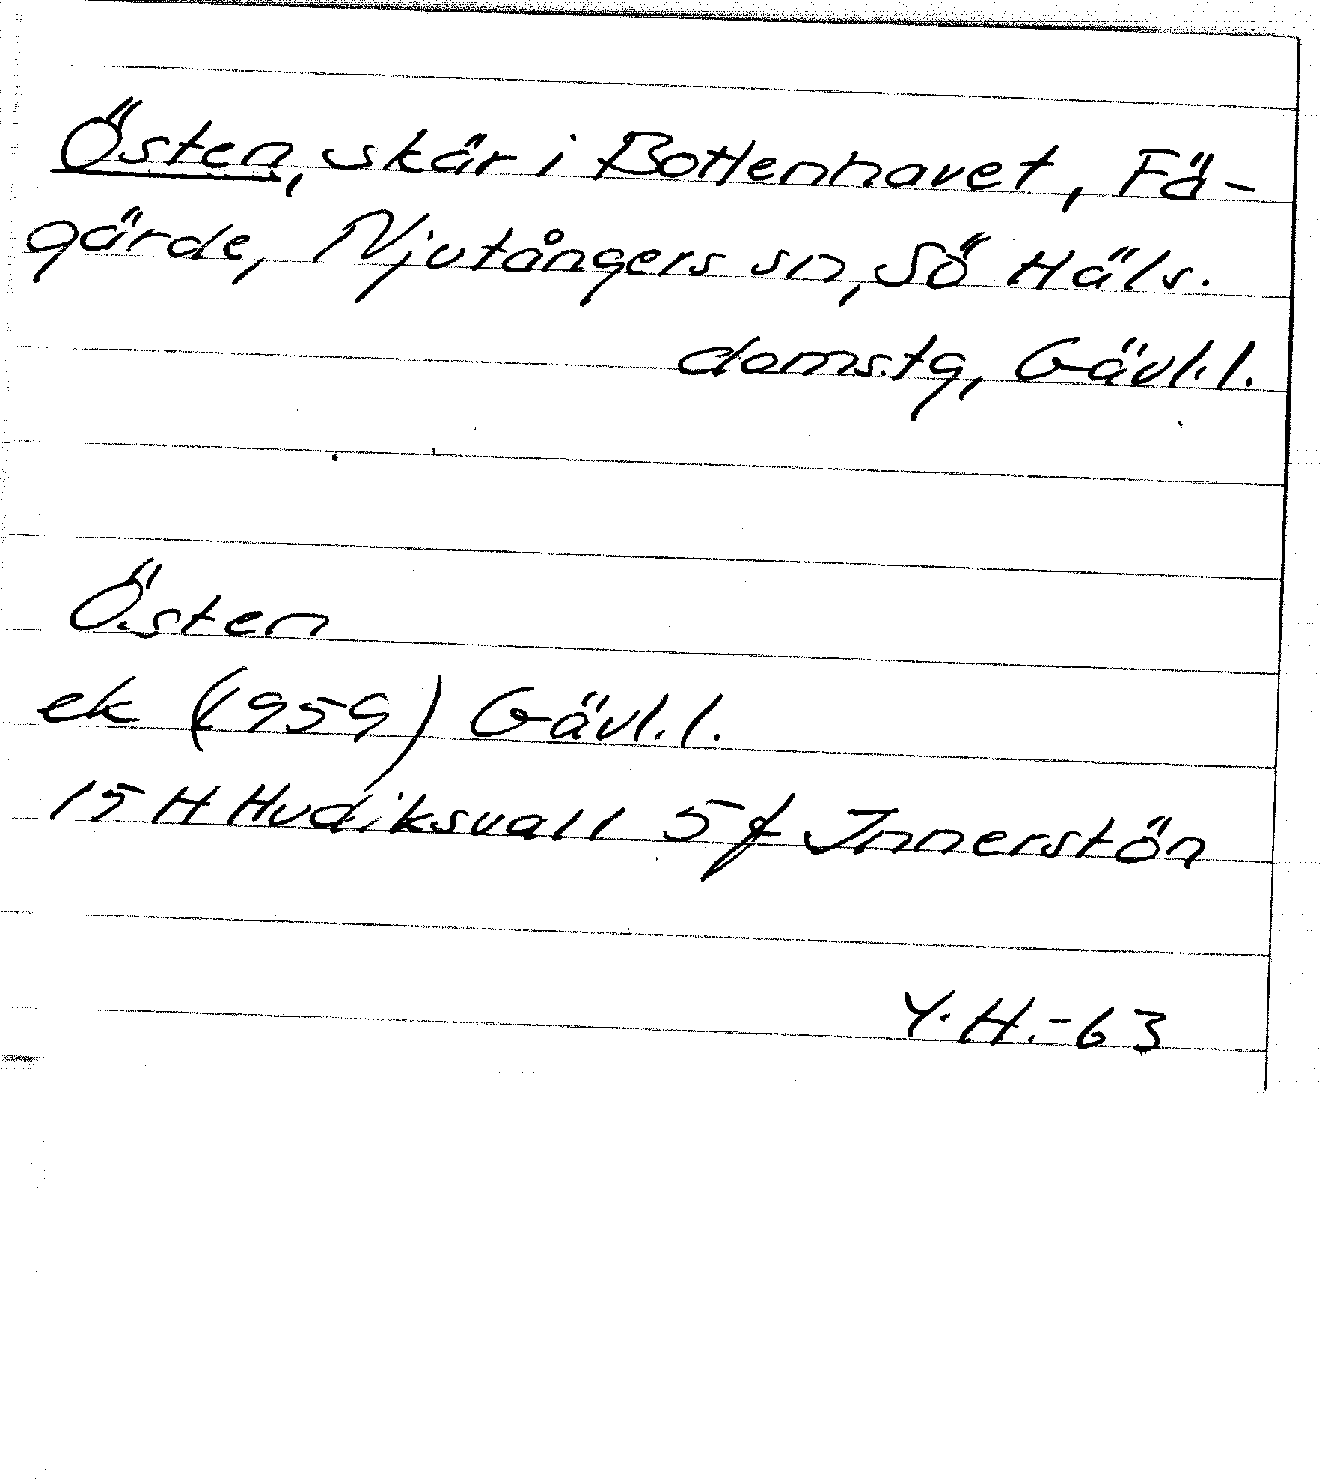 Östen, skär i Bottenhavet, Fä-
gärde, Njutångers sn, Sö Häls.
domstg, Gävl.l.
Östen
ek (1959) Gävl.l.
15 H Hudiksvall 5 f Innerstön
Y.H.-63